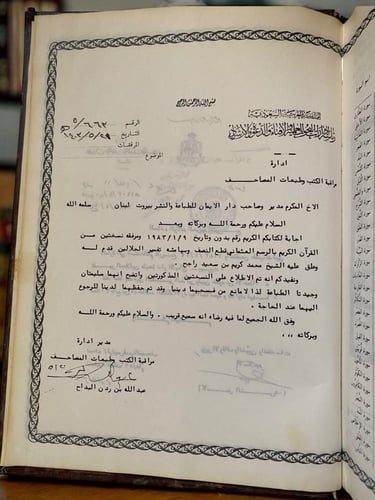 بسم الله الرحمن الرحيم
المملكة العربية السعودية
رئاسة إدارات البحوث العلمية والإفتاء والدعوة والإرشاد
الرقم ٥/٦٦٣
التاريخ
المرفقات
الموضوع
ادارة
مراقبة الكتب وطبعات المصاحف
الاخ المكرم مدير وصاحب دار الايمان للطباعة والنشر بيروت لبنان سلمه الله
السلام عليكم ورحمة الله وبركاته وبعد
اجابة لكتابكم الكريم رقم بدون وتاريخ ١٩٨٣/١/٩ وبرفقه نسختين من
القرآن الكريم بالرسم العثماني قطع النصف وبهامشه تفسير الجلالين قدم له
وعلق عليه الشيخ محمد كريم بن سعيد راجح
ونفيدكم انه تم الاطلاع على النسختين المذكورتين واتضح انهما سليمتان
وجيدتا الطباعة لذا لا مانع من فسحهما وقد تم حفظهما لدينا للرجوع
اليهما عند الحاجة .
وفق الله الجميع لما فيه رضاه انه سميع قريب . والسلام عليكم ورحمة الله
وبركاته ,,,
مدير ادارة
مراقبة الكتب وطبعات المصاحف
عبدالله بن ردن البداح